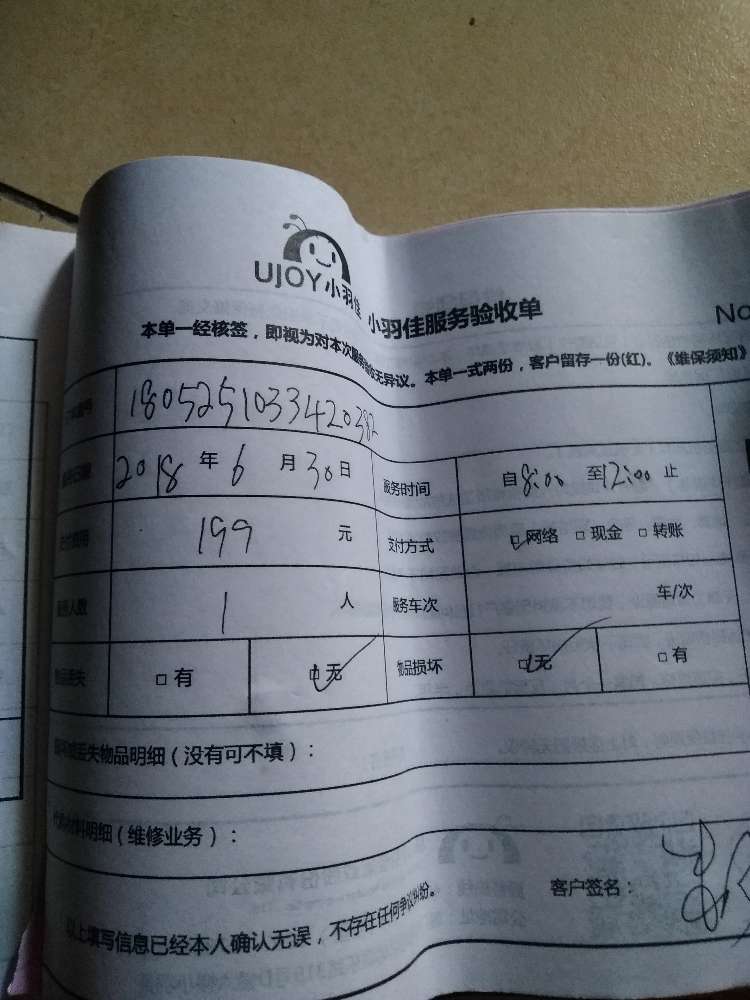 UJOY小羽佳 小羽佳服务验收单
No
本单一经核签，即视为对本次服务验收无异议。本单一式两份，客户留存一份(红)。《维保须知》
1805251033420382
2018 年 6 月 30 日 服务时间 自 8:00 至 12:00 止
199 元 支付方式 ☑网络 □现金 □转账
服务人数 1 人 服务车次 车/次
□有 ☑无 物品损坏 ☑无 □有
丢失物品明细（没有可不填）：
材料明细（维修业务）：
客户签名：
以上填写信息已经本人确认无误，不存在任何争议纠纷。